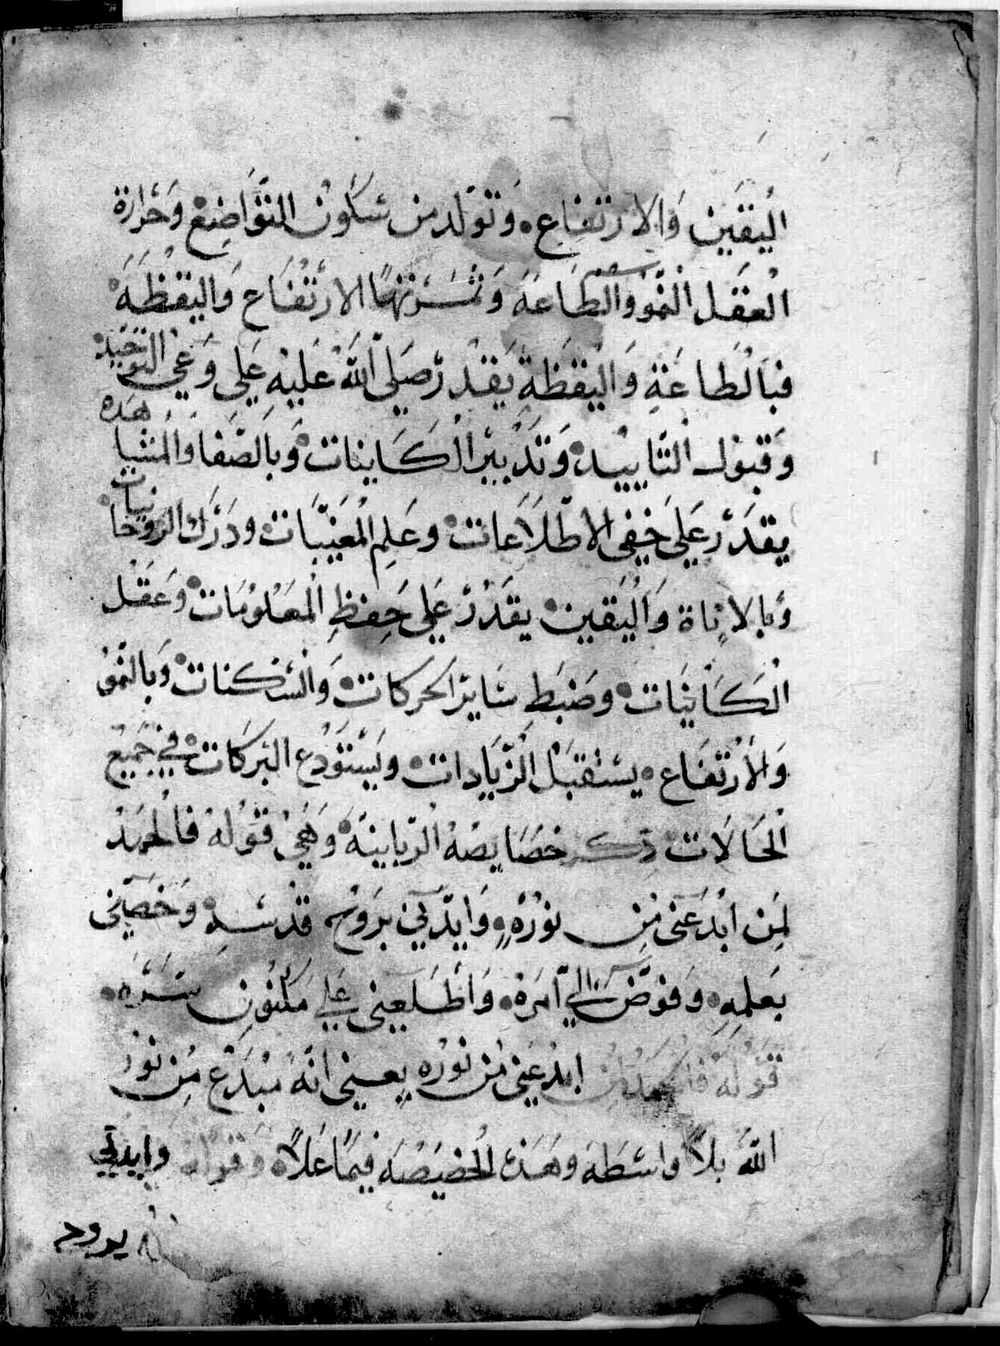 اليَقين وَالارتفاع. وَتوَلد من سُكون التوَاضع وَحَرارة
العَقل النموّ وَالطاعَة وَثمرَتهَا الارتفَاع وَاليَقظَة
فبالطاعَةِ وَاليَقظَةِ يَقدر صَلى الله عَليه عَلى وَعي التَوحيد
وَقبول التاييد. وَتَدبير الكَاينات. وَبالصَفا وَالمشيا هذه
يقدَر عَلى خفي الاطلاعَات وعَلم المغيَّبات. ودَرك الروحانيات
وَبالاناة وَاليَقين. يقدَر عَلى حِفظ المعَلومَات. وَعَقل
الكَانيَات. وضَبط سَاير الحركات. وَالسَكنات. وَبالنموّ
وَالارتفَاع. يستقبَل الزيادات. ويَستَودع البَركات. في جَميع
الحَالات ذكر خصَايصه الربانيَة. وَهي قوله فالحَمد
لمن ابدَعَني من نوره. وَايّدني برَوح قدسه. وَخصّني
بعلمه. وَفوّض الي امرَه. وَاطلَعني عَلي مَكنون سَرّه.
قوله فالحمد لمن ابدعَني من نوره يعني انهُ مبدَع من نور
الله بلا واسَطة وهَذه الخصيصَة فيمَا عَلاه وَقوله وايدني
بروح